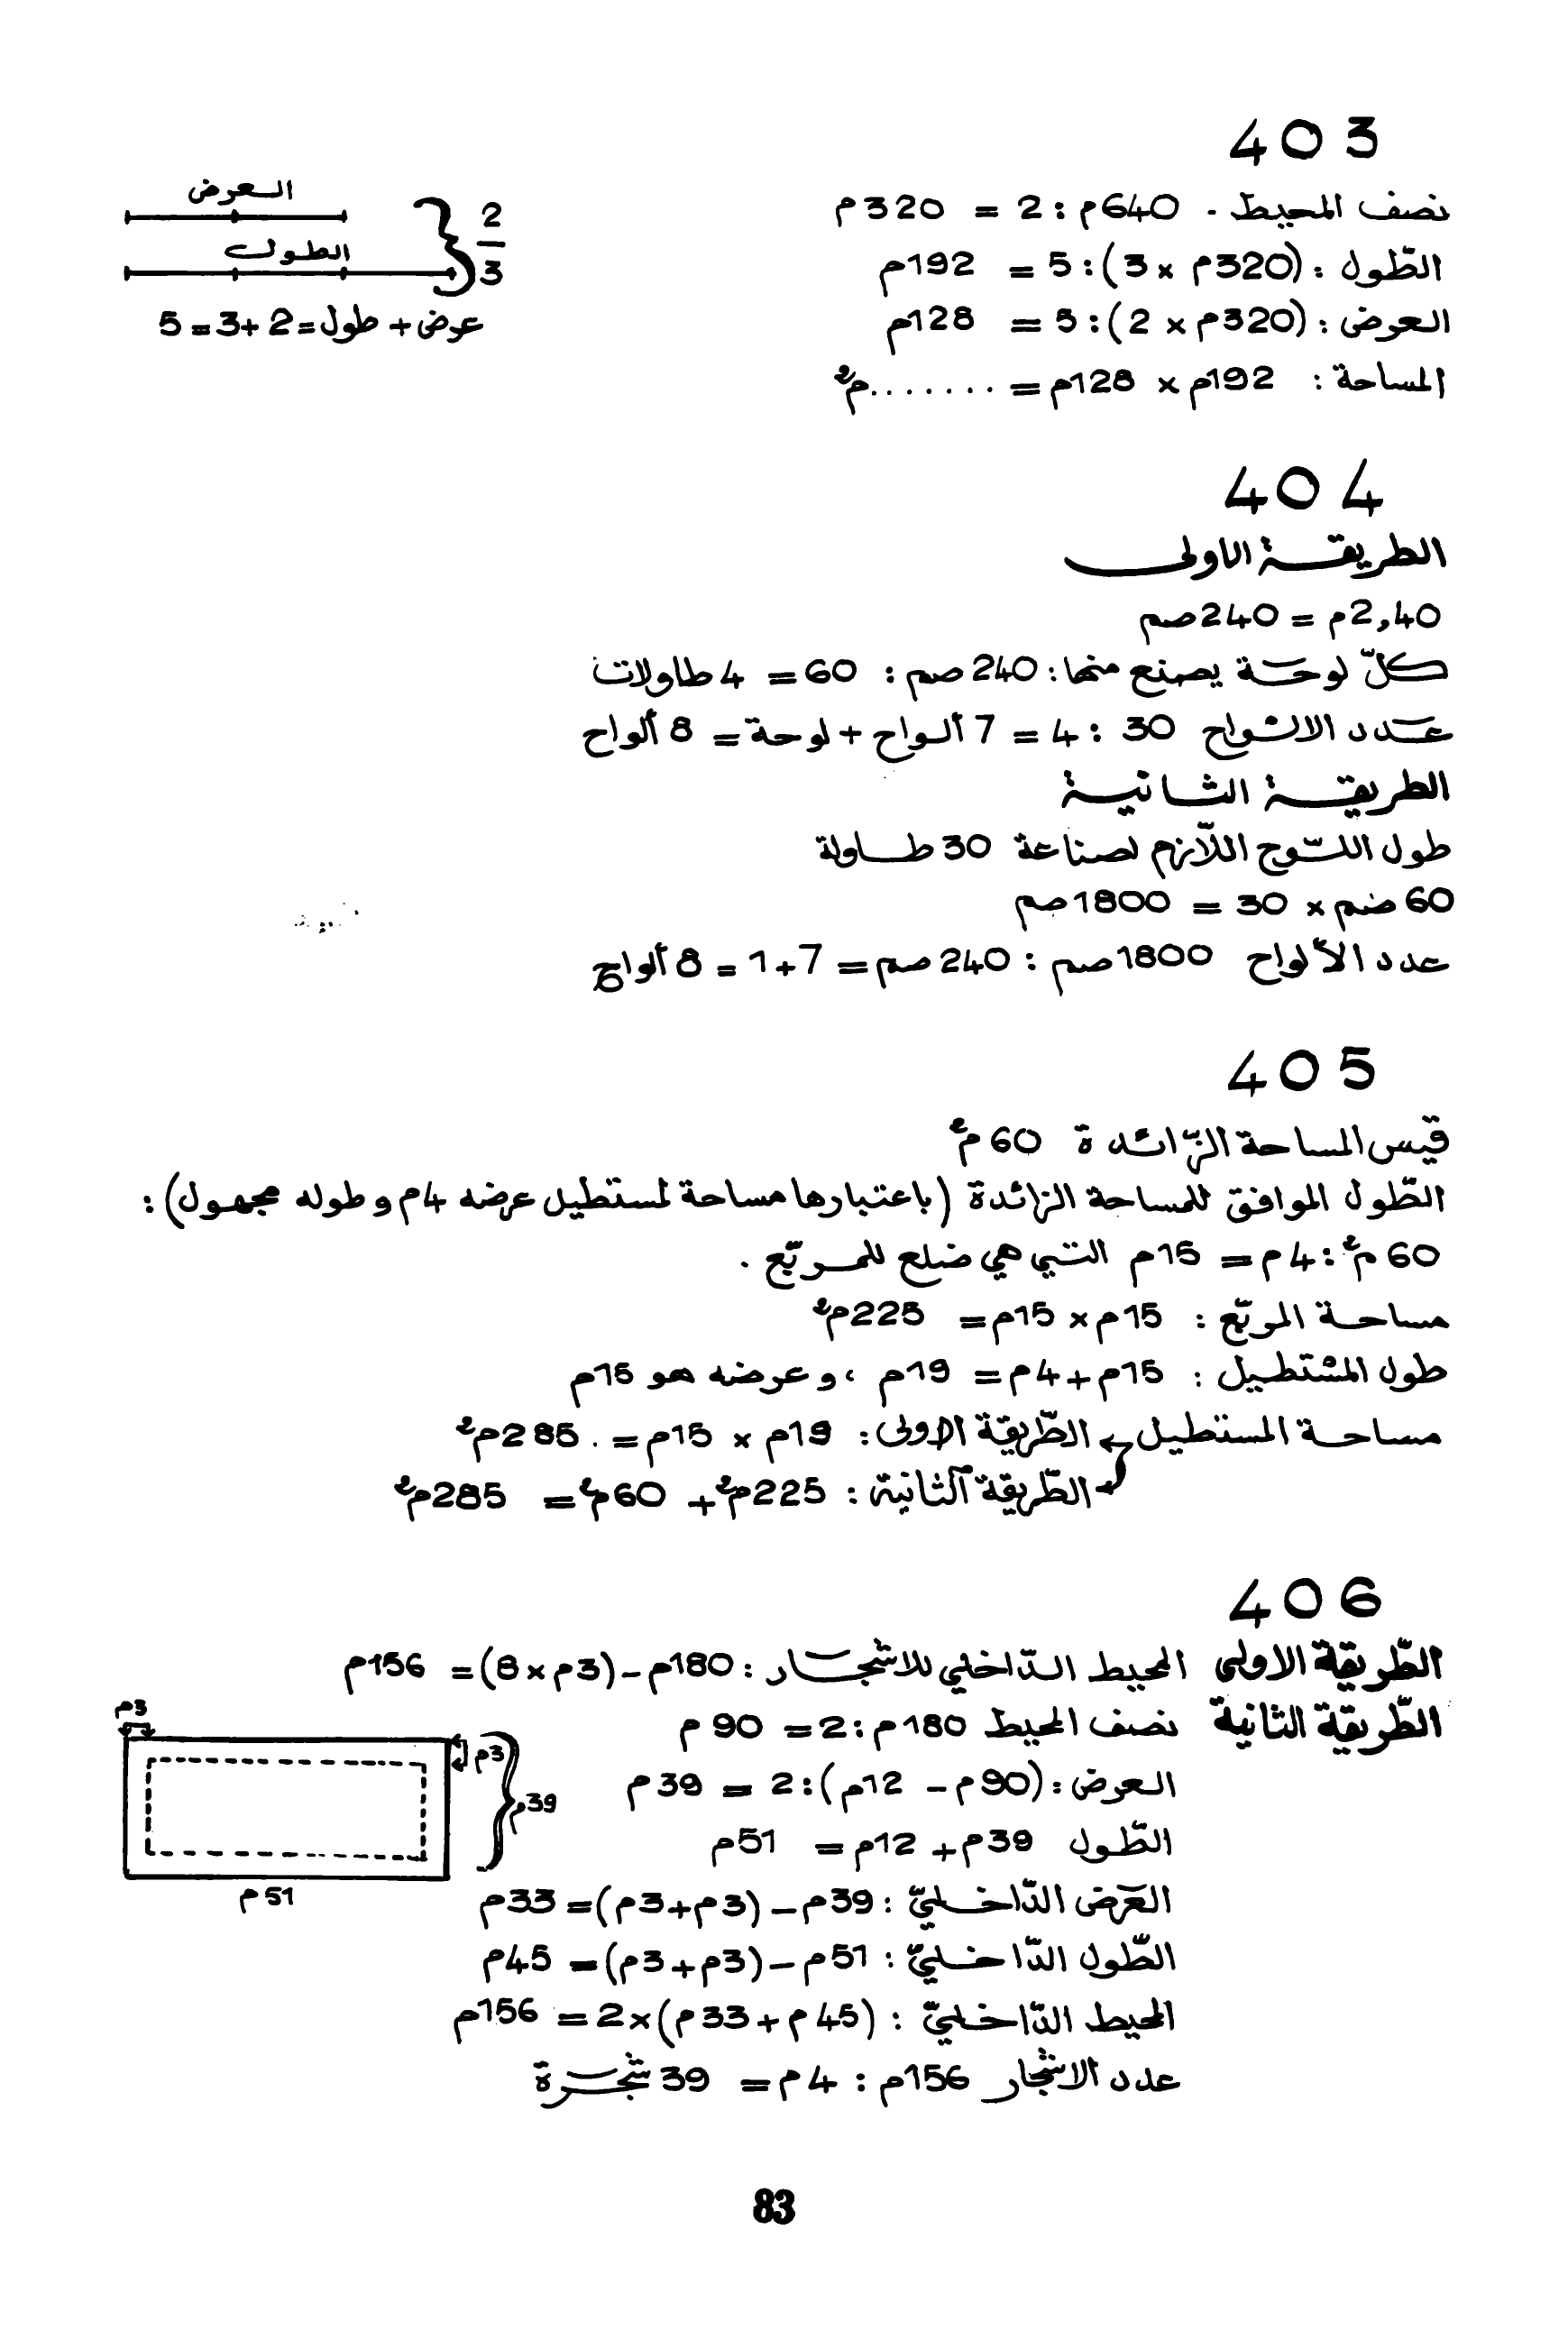 403
نصف المحيط . 640م : 2 = 320م
الطّول : (320م × 3) : 5 = 192م
العرض : (320م × 2) : 5 = 128م
المساحة : 192م × 128م = .......م²
العرض
الطول
2
3
عرض + طول = 2 + 3 = 5
404
الطريقة الاولى
2,40م = 240صم
كلّ لوحة يصنع منها : 240صم : 60 = 4 طاولات
عدد الالواح 30 : 4 = 7 ألواح + لوحة = 8 ألواح
الطريقة الثانية
طول اللّوح اللّازم لصناعة 30 طاولة
60 صم × 30 = 1800صم
عدد الألواح 1800صم : 240صم = 7+1 = 8 ألواح
405
قيس المساحة الزّائدة 60م²
الطّول الموافق للمساحة الزائدة (باعتبارها مساحة لمستطيل عرضه 4م وطوله مجهول) :
60م² : 4م = 15م التي هي ضلع للمربّع .
مساحة المربّع : 15م × 15م = 225م²
طول المستطيل : 15م + 4م = 19م ، وعرضه هو 15م
مساحة المستطيل الطّريقة الاولى : 19م × 15م = . 285م²
الطّريقة الثّانية : 225م² + 60م² = 285م²
406
الطّريقة الاولى المحيط الدّاخلي للاشجار : 180م - (3م × 8) = 156م
الطّريقة الثانية نصف المحيط 180م : 2 = 90م
العرض : (90م - 12م) : 2 = 39م
الطّول 39م + 12م = 51م
العرض الدّاخليّ : 39م - (3م + 3م) = 33م
الطّول الدّاخليّ : 51م - (3م + 3م) = 45م
المحيط الدّاخليّ : (45م + 33م) × 2 = 156م
عدد الاشجار 156م : 4م = 39 شجرة
3م
3م
39م
51م
83